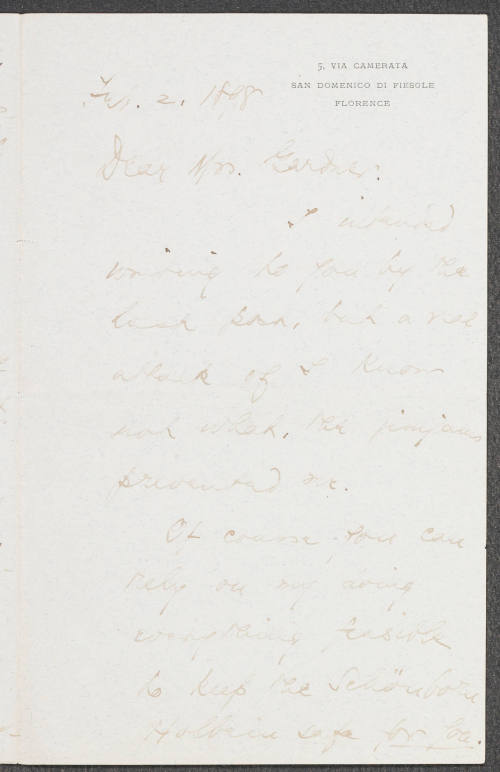 5, VIA CAMERATA
SAN DOMENICO DI FIESOLE
FLORENCE
2, 1898
Dear Mrs. Gardner,
I intended
writing to you by the
last post, but a vile
attack of I know
not what, the
prevented me.
Of course you can
rely on my doing
everything feasible
to keep the Schönborn
Holbein safe for you.